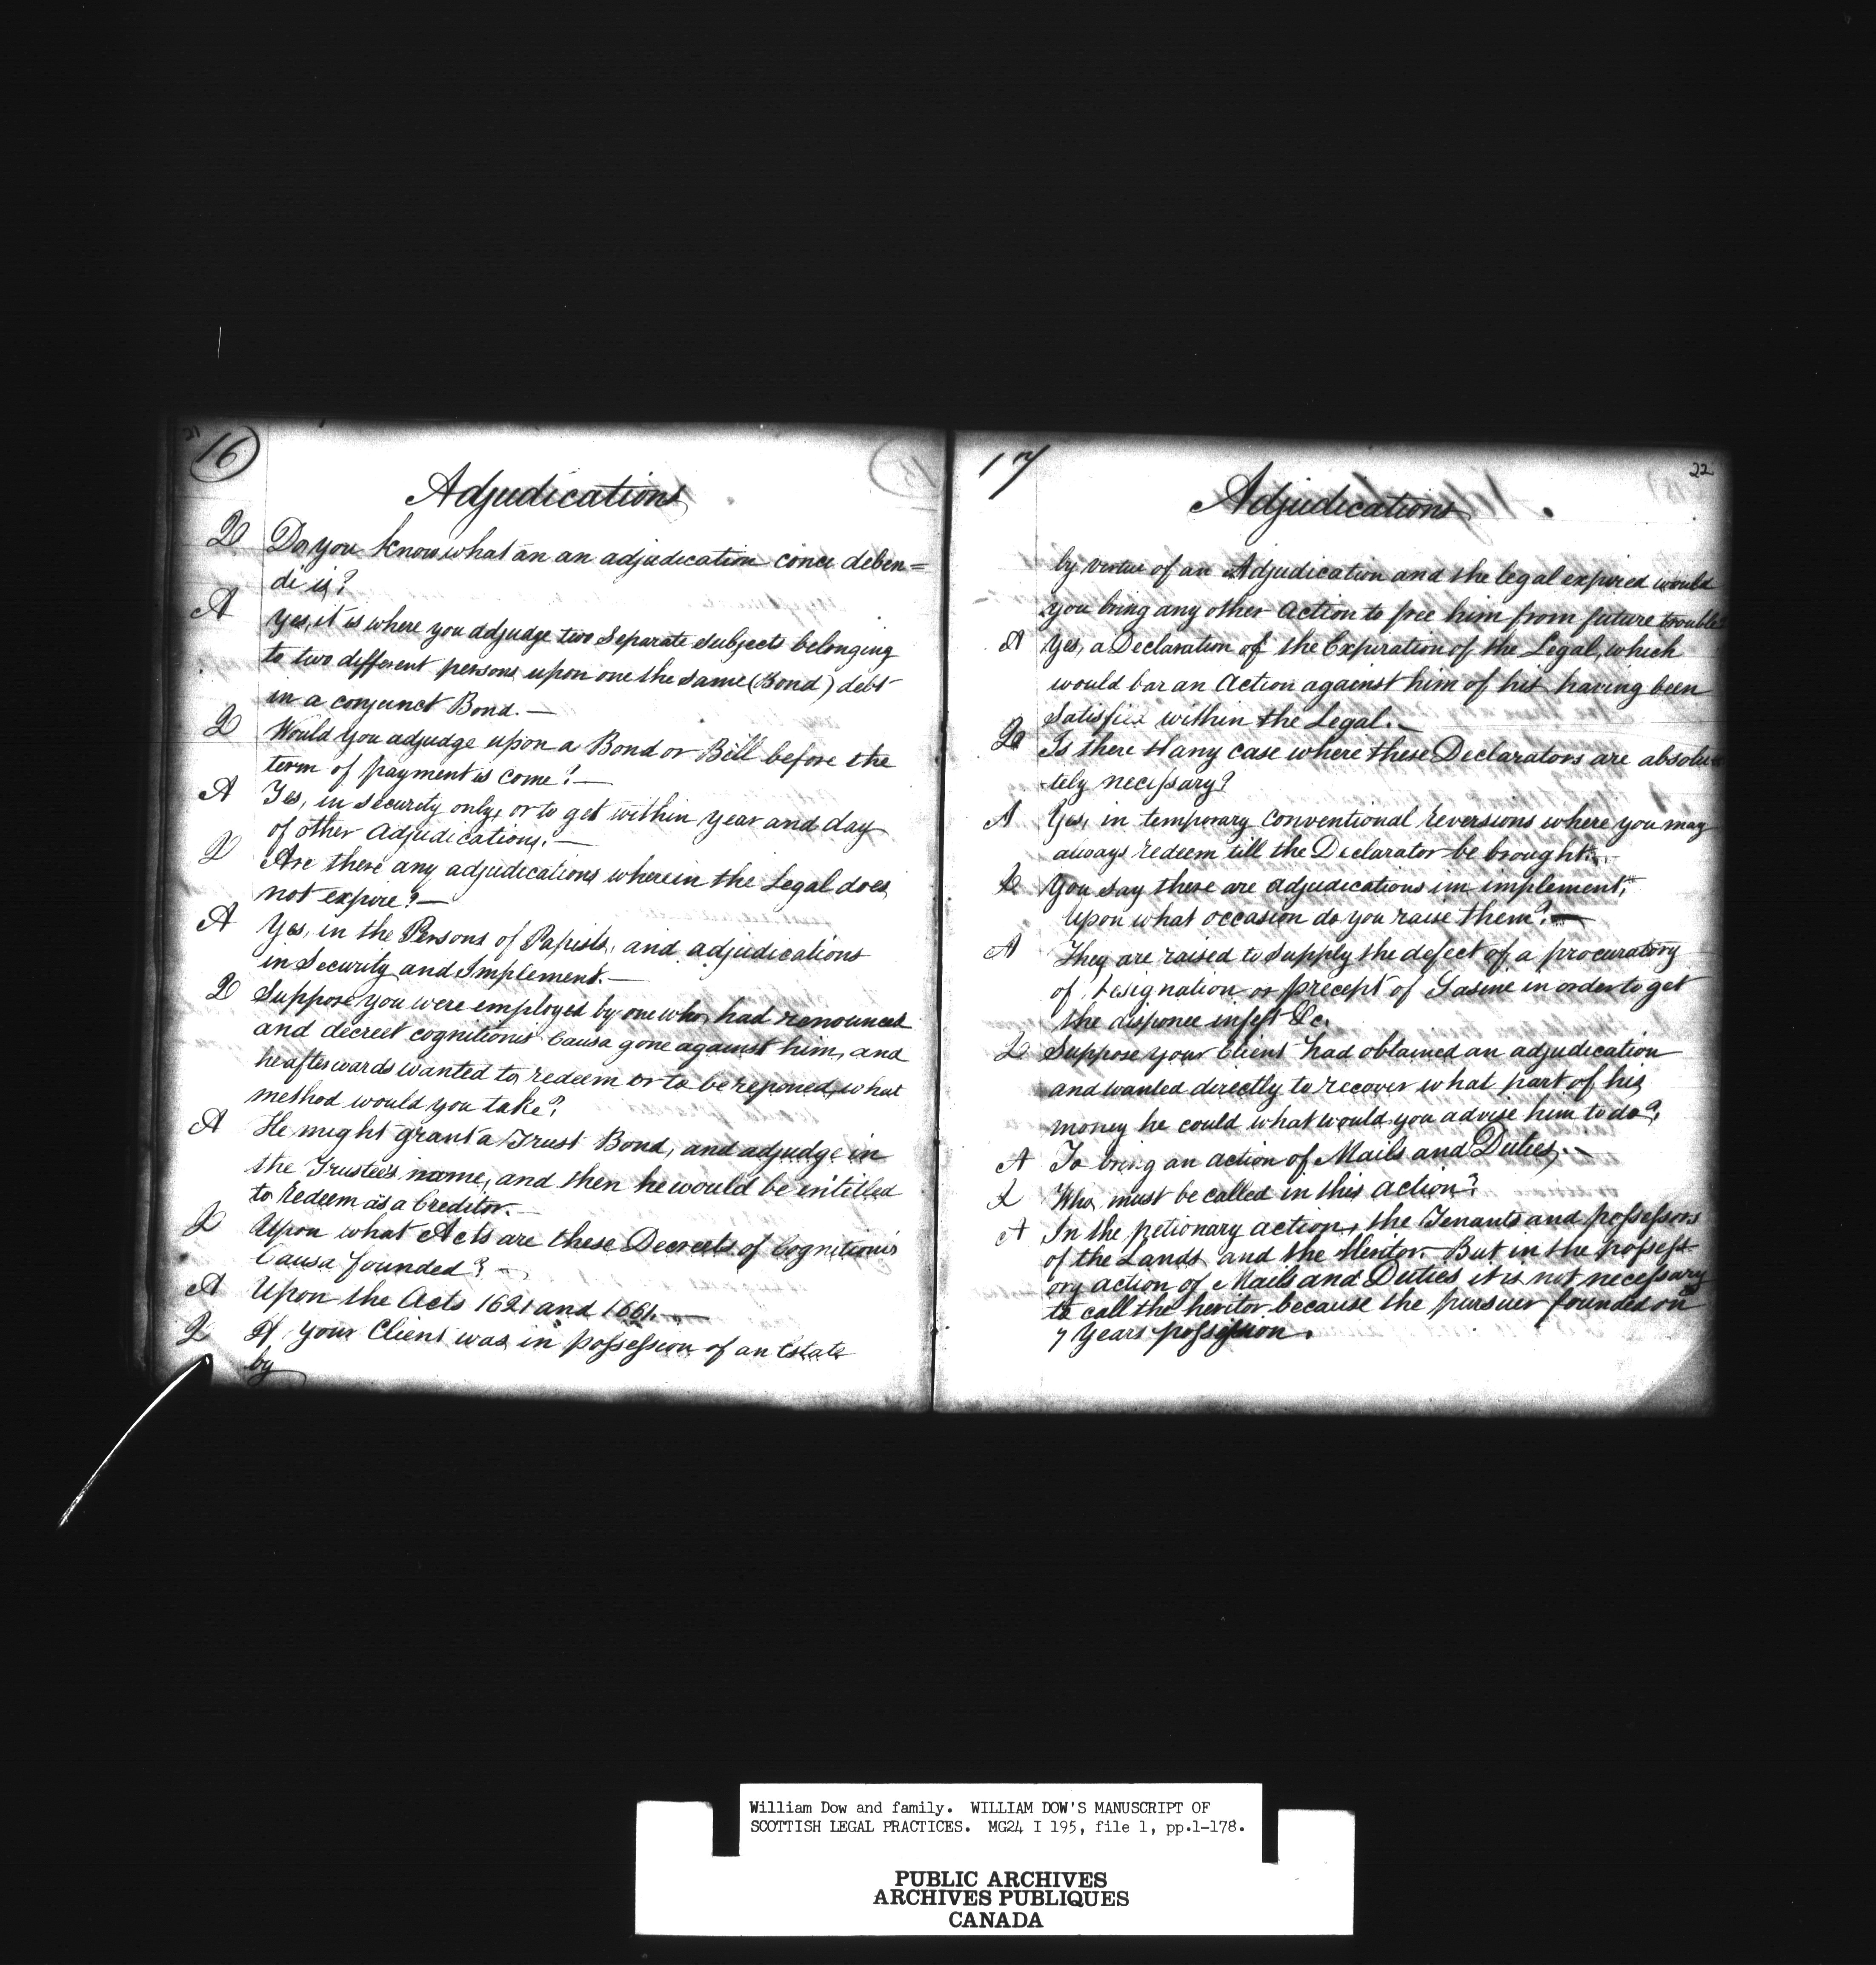 21
16
Adjudications
Q Do you know what an an adjudication conce deben=
di is?
A Yes, it is where you adjudge two Separate Subjects belonging
to two different persons upon one the same (Bond) debt
in a conjunct Bond. —
Q Would you adjudge upon a Bond or Bill before the
term of payment is come? —
A Yes, in Security only, or to get within year and day
of other Adjudications. —
Q Are there any adjudications wherein the Legal does
not expire? —
A Yes, in the Persons of Papists, and adjudications
in Security and Implement. —
Q Suppose you were employed by one who had renounced
and decreet cognitionis Causa gone against him, and
he afterwards wanted to redeem or to be reponed, what
method would you take?
A He might grant a Trust Bond, and adjudge in
the Trustees name, and then he would be intitled
to Redeem as a Creditor. —
Q Upon what Acts are these Decreets of Cognitionis
Causa founded? —
A Upon the Acts 1621 and 1661. —
Q If your Client was in possession of an Estate
by
17
22
Adjudications
by virtue of an Adjudication and the legal expired would
you bring any other Action to free him from future trouble?
A Yes, a Declaration of the Expiration of the Legal, which
would bar an Action against him of his having been
Satisfied within the Legal. —
Q Is there any case where these Declarators are absolu-
-tely necessary?
A Yes, in temporary Conventional Reversions where you may
always Redeem till the Declarator be brought. —
Q You say there are adjudications im implement,
Upon what occasion do you raise them? —
A They are raised to Supply the defect of a procuratory
of Resignation or precept of Sasine in order to get
the disponee infeft &c.
Q Suppose your Client had obtained an adjudication
and wanted directly to recover what part of his
money he could what would you advise him to do?
A To bring an action of Mails and Duties. —
Q Who must be called in this action?
A In the petionary action, the Tenants and possessors
of the Lands and the Heritor. But in the possess-
ory action of Mails and Duties it is not necessary
to call the heritor because the pursuer founded on
7 Years possession.
William Dow and family. WILLIAM DOW'S MANUSCRIPT OF
SCOTTISH LEGAL PRACTICES. MG24 I 195, file 1, pp.1-178.
PUBLIC ARCHIVES
ARCHIVES PUBLIQUES
CANADA